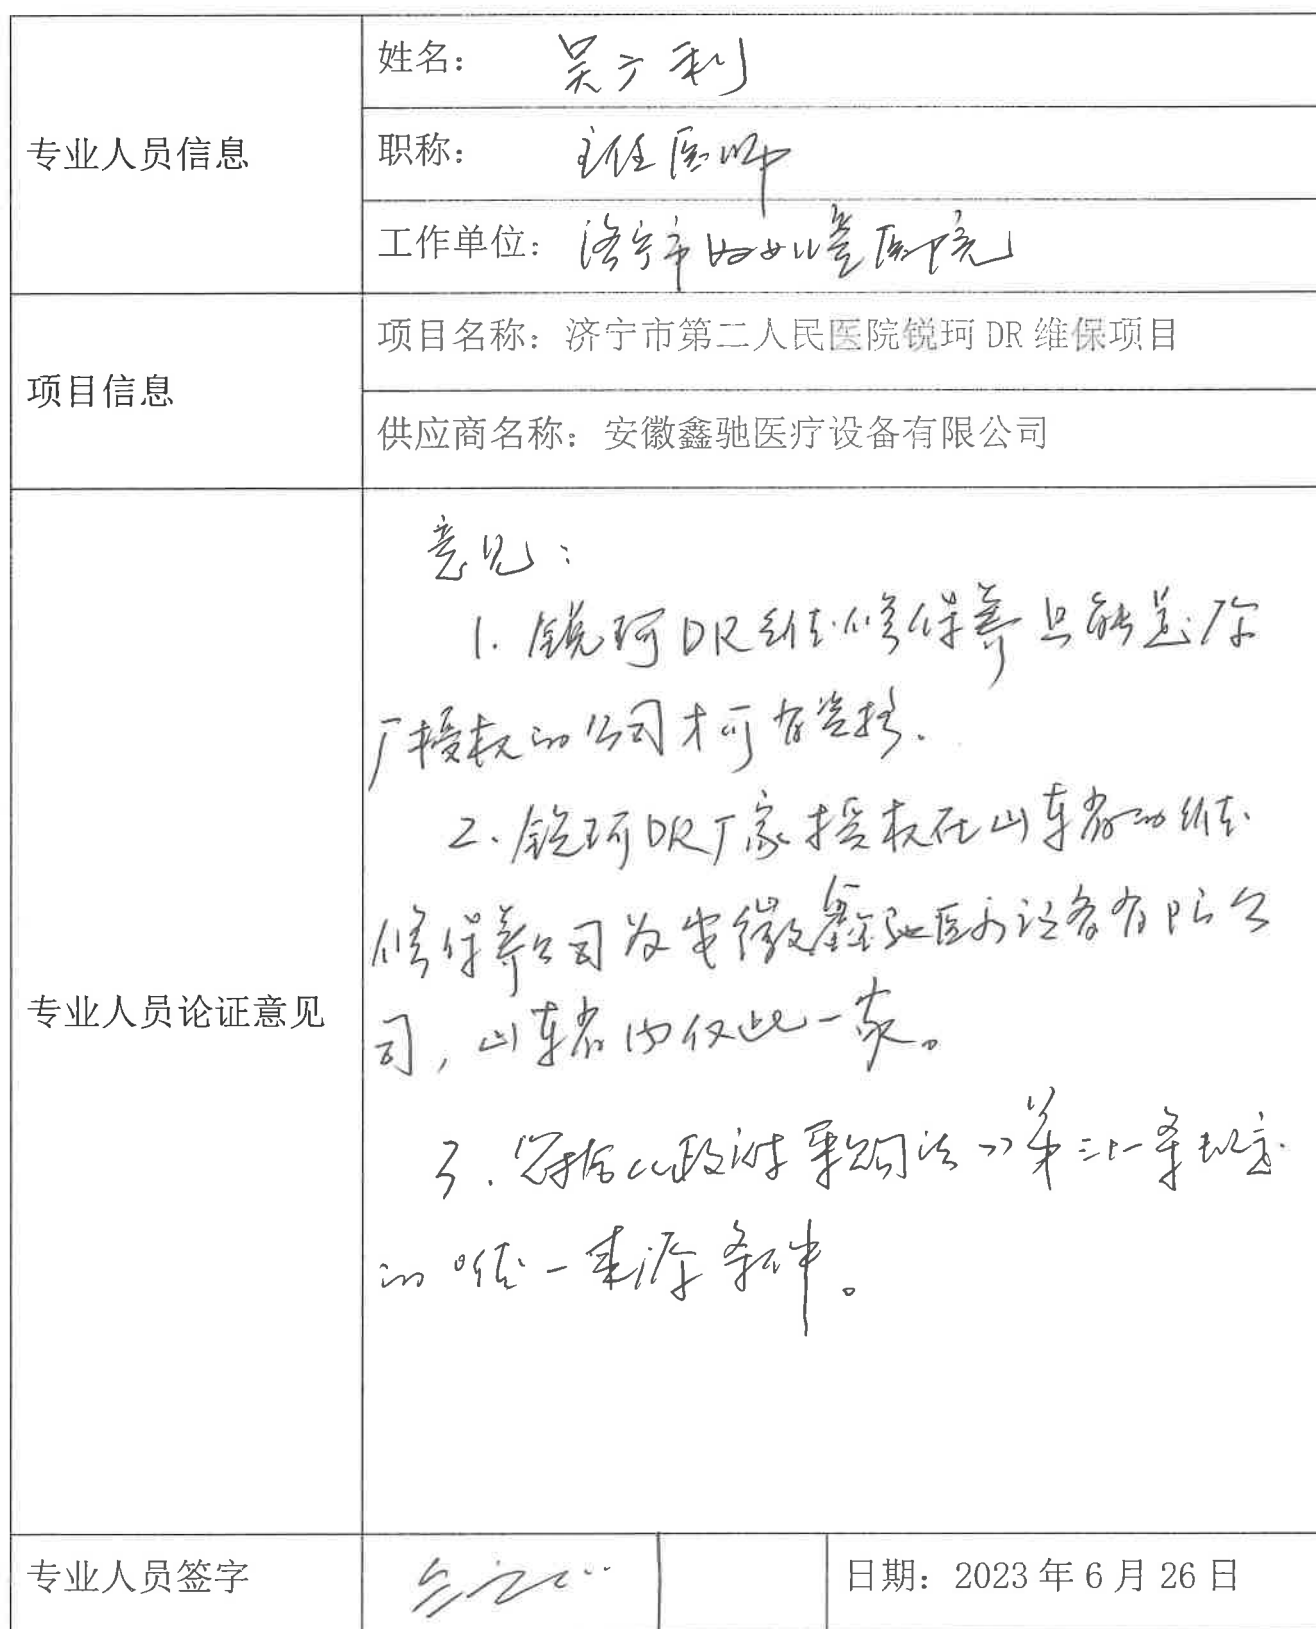 姓名： 吴广利
专业人员信息
职称： 主任医师
工作单位： 济宁市妇女儿童医院
项目名称：济宁市第二人民医院锐珂 DR 维保项目
项目信息
供应商名称：安徽鑫驰医疗设备有限公司
意见：
1. 锐珂DR维修保养只能是原
厂授权的公司才可有资格.
2. 锐珂DR厂家授权在山东省的维
修保养公司为安徽鑫驰医疗设备有限公
专业人员论证意见
司，山东省内仅此一家。
3. 符合《政府采购法》第三十一条规定
的唯一来源条件。
专业人员签字 日期：2023 年 6 月 26 日